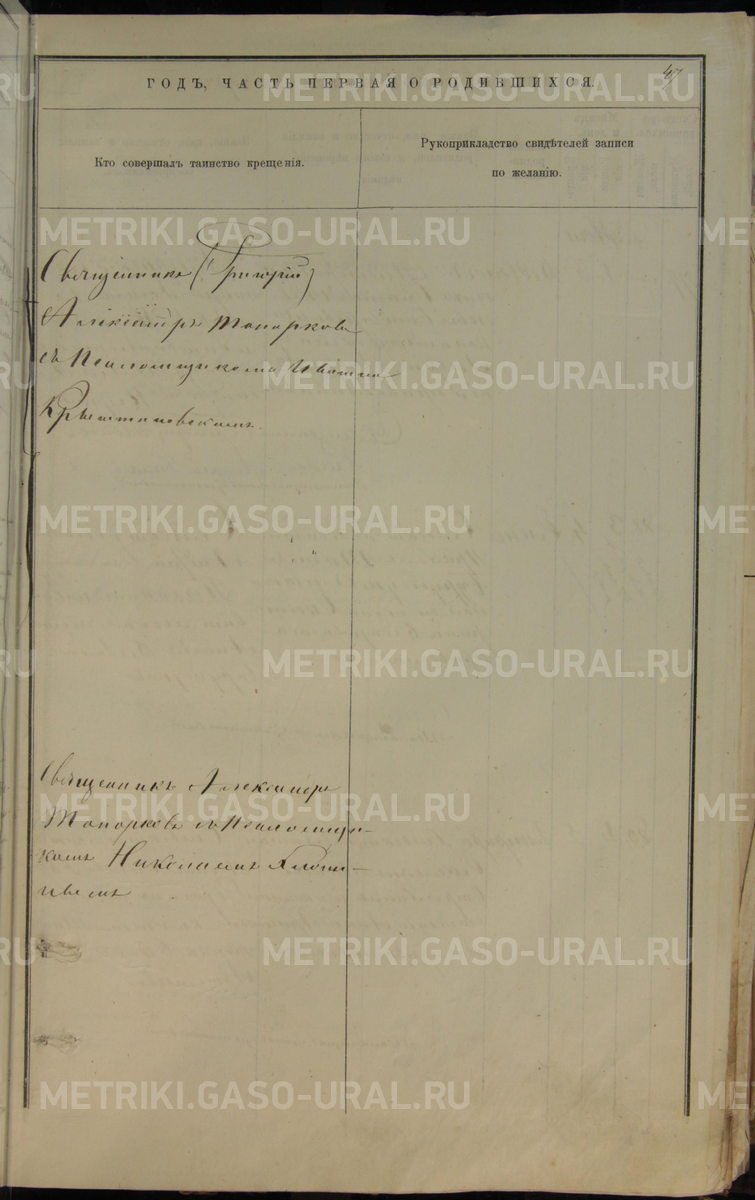 47
ГОДЪ, ЧАСТЬ ПЕРВАЯ О РОДИВШИХСЯ.
Кто совершалъ таинство крещенія.
Рукоприкладство свидѣтелей записи
по желанію.
Священникъ (Григорій)
Александръ Топорковъ
съ Псаломщикомъ
Крыштановскимъ.
Священникъ Александръ
Топорковъ съ Псаломщи-
комъ Николаемъ
METRIKI.GASO-URAL.RU